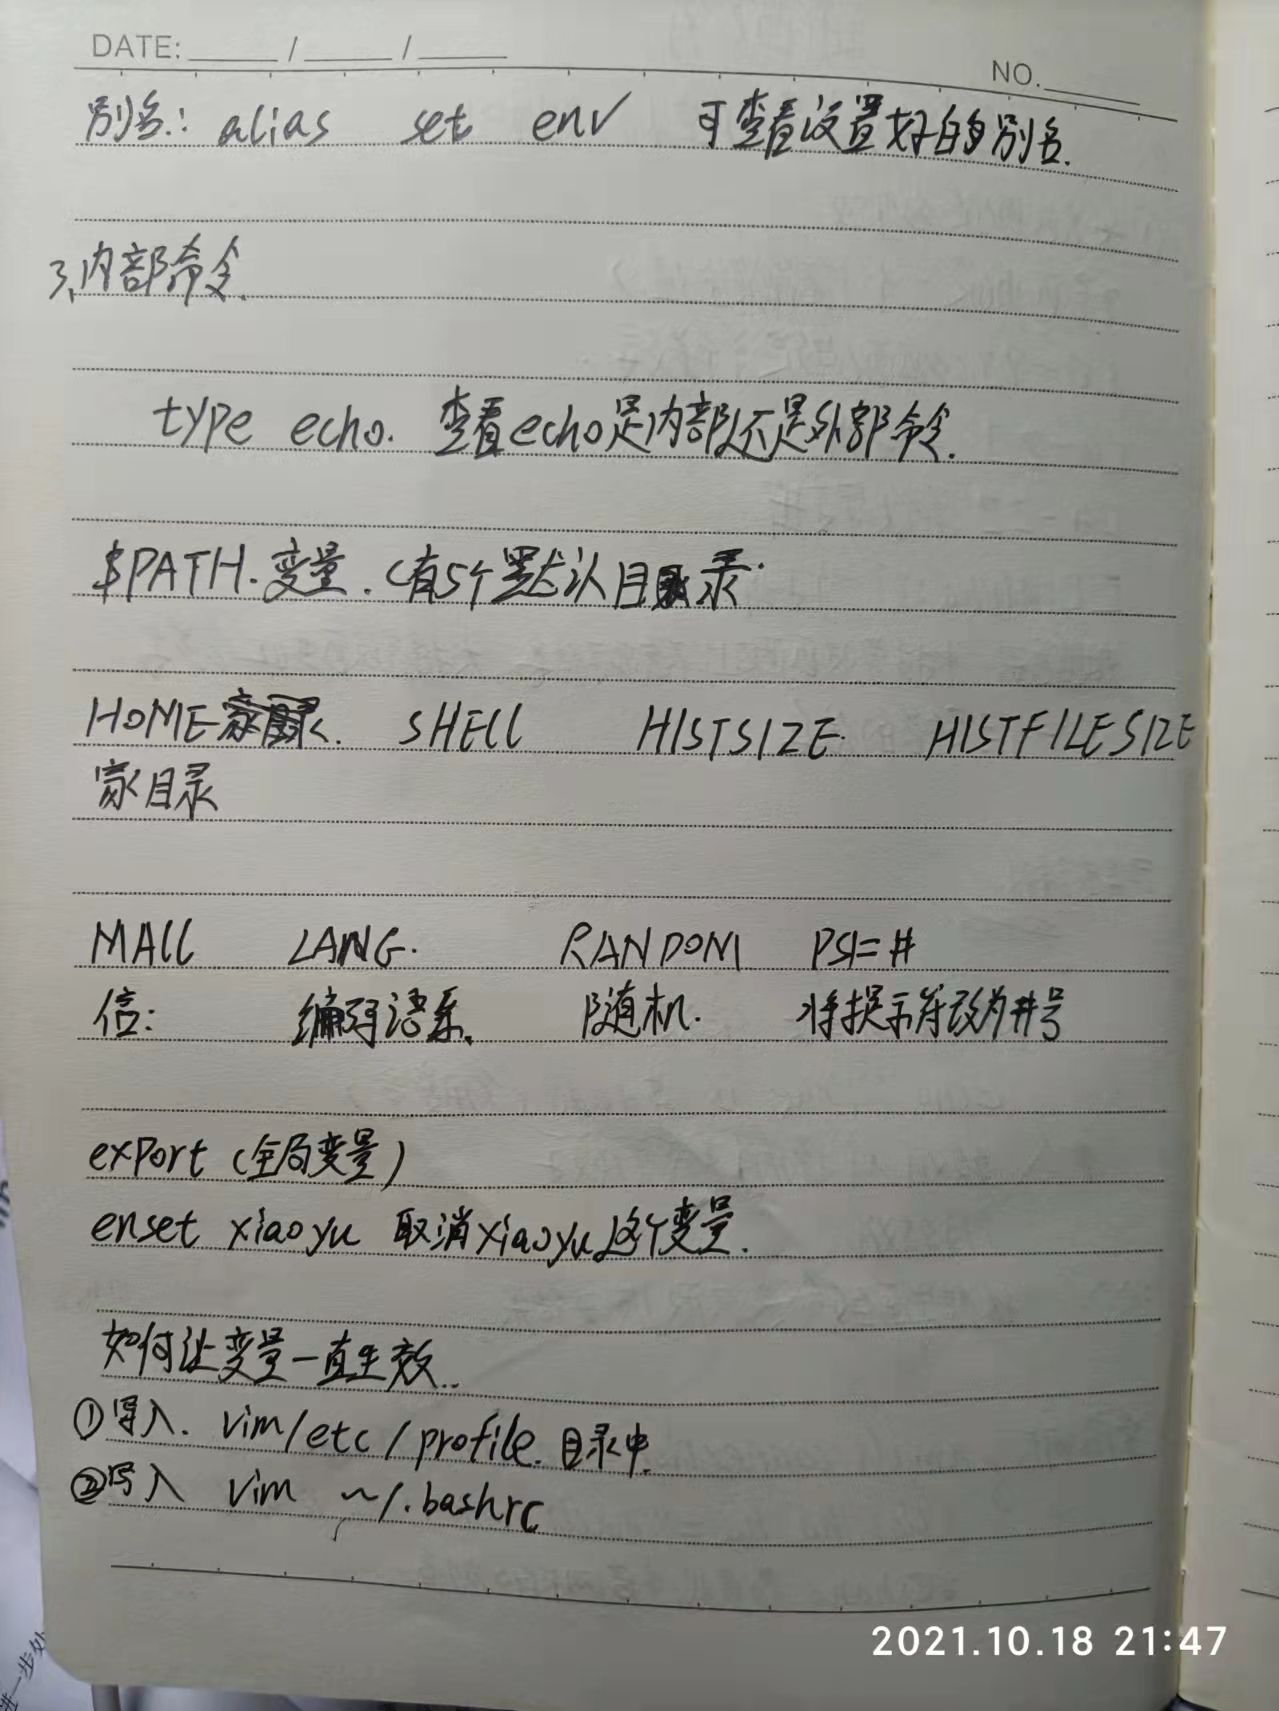 DATE: / /
NO.
别名: alias set env 可查看设置好的别名.
3,内部命令.
type echo. 查看echo是内部还是外部命令.
$PATH.变量.(有5个默认目录.
HOME SHELL HISTSIZE. HISTFILESIZE
家目录
MAIL LANG. RANDOM PS1=#
信: 编码语系. 随机. 将提示符改为井号
export (全局变量)
enset xiaoyu 取消xiaoyu这个变量.
如何让变量一直生效..
①写入. vim/etc/profile. 目录中.
②写入 vim ~/.bashrc
2021.10.18 21:47